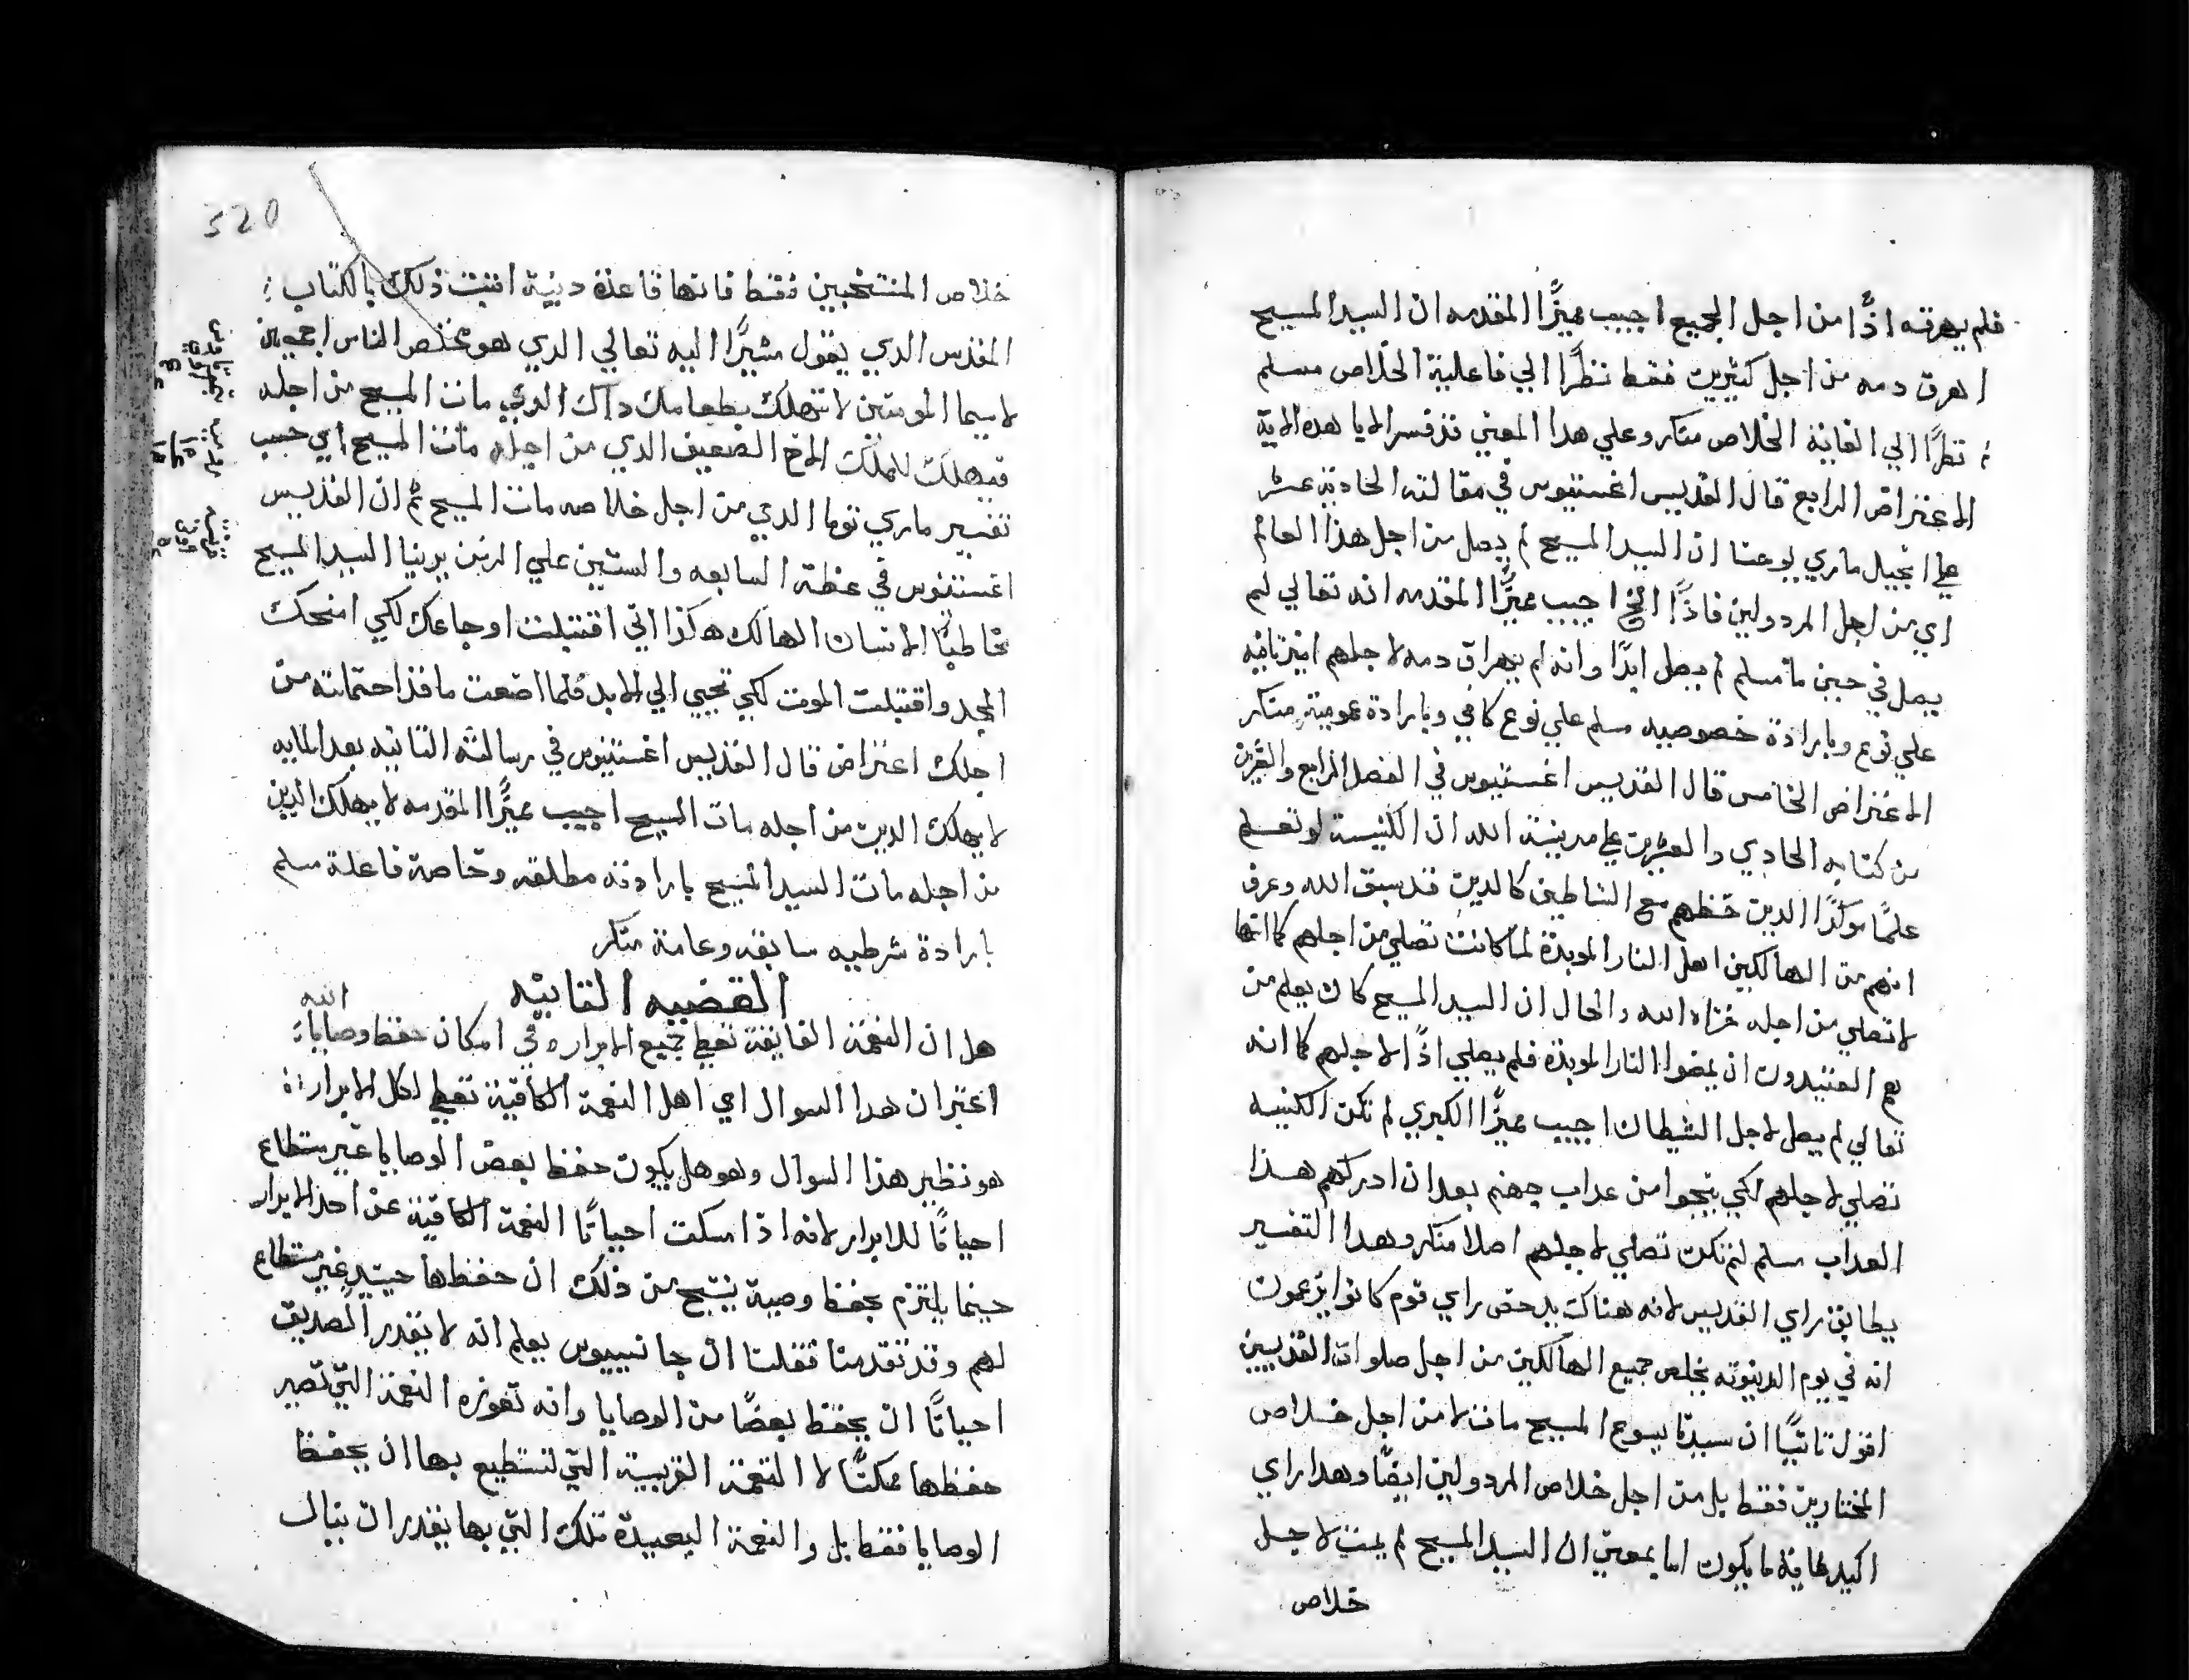 فلم يهرقه اذًا من اجل الجميع اجيب مميزًا المقدمه ان السيد المسيح
اهرق دمه من اجل كثيرين فقط نظرًا الي فاعلية الخلاص مسلم
نظرًا الي الغاية الخلاص منكر وعلي هدا المعني قد فسر الابا هده الاية
الاعتراض الرابع قال القديس اغستنيوس في مقالته الحادية عشر
علي انجيل ماري يوحنا ان السيد المسيح لم يصل من اجل هذا العالم
اي من اجل المردولين فاذًا الخ اجيب مميزًا المقدمه انه تعالي لم
يصل في حين ما مسلم لم يصل ابدًا وانه لم يهراق دمه لاجلهم
علي نوع وبارادة خصوصيه مسلم علي نوع كافي وبارادة عمومية منكر
الاعتراض الخامس قال القديس اغستنيوس في الفصل الرابع والعشرين
من كتابه الحادي والعشرين علي مدينة الله ان الكنيسة لو تعلم
علمًا موكدًا الدين حظهم مع الشاطين كالدين قد سبق الله وعرف
انهم من الهالكين اهل النار الموبدة لما كانت تصلي من اجلهم كما انها
لا تصلي من اجله الله والحال ان السيد المسيح كان يعلم من
هم العتيدون ان يمضوا النار الموبدة فلم يصلي اذًا لاجلهم كما انه
تعالي لم يصل لاجل الشيطان اجيب مميزًا الكبري لم تكن الكنيسه
تصلي لاجلهم لكي ينجوا من عداب جهنم بعد ان ادركهم هذا
العداب مسلم لم تكن تصلي لاجلهم اصلا منكر وهدا التفسير
يطابق راي القديس لانه هناك يدحض راي قوم كانوا يزعمون
انه في يوم الدينونه يخلص جميع الهالكين من اجل صلوات القديسين
اقول ثانيًا ان سيدنا يسوع المسيح مات لا من اجل خلاص
المختارين فقط بل من اجل خلاص المردولين ايضًا وهدا راي
اكيد ما يكون اما بمعني ان السيد المسيح لم يمت لاجل
خلاص
320
خلاص المنتخبين فقط فانها قاعدة دينية اثبت ذلك بالكتاب
المقدس الدي يقول مشيرًا اليه تعالي الدي هو مخلص الناس اجمعين
لاسيما المومنين لا تهلك بطعامك داك الدي مات المسيح من اجله
فيهلك الاخ الضعيف الدي من اجله مات المسيح اي حسب
تفسير ماري توما الدي من اجل خلاصه مات المسيح ثم ان القديس
اغستنيوس في عظة السابعه والستين علي الزمن يرينا السيد المسيح
مخاطبًا الانسان الهالك هكذا اني اقتبلت اوجاعك لكي امنحك
المجد واقتبلت الموت لكي تحيي الي الابد فلما اضعت ما قد احتملته من
اجلك اعتراض قال القديس اغستنيوس في رسالته الثانيه بعد المايه
لا يهلك الدين من اجله مات المسيح اجيب مميزًا المقدمه لا يهلك الدين
من اجله مات السيد المسيح بارادته مطلقه وخاصة فاعلة مسلم
بارادة شرطيه سابقه وعامة منكر
القضيه الثانيه
هل ان النعمة الفايقة تعطي جميع الابرار في امكان حفظ وصايا الله
اعتبر ان هدا السوال اي اهل النعمة الكافية تعطي لكل الابرار
هو نظير هذا السوال وهو هل يكون حفظ بعض الوصايا غير مستطاع
احيانًا للابرار لانه اذا مسكت احيانًا النعمة الكافية عن احد الابرار
حينما يلتزم بحفظ وصية ينتج من ذلك ان حفظها حينيد غير مستطاع
لهم وقد تقدمنا فقلنا ان جانسيوس يعلم انه لا يقدر الصديق
احيانًا ان يحفظ بعضًا من الوصايا وانه تعوزه النعمة التي تصير
حفظها ممكنًا لا النعمة القريبة التي تستطيع بها ان يحفظ
الوصايا فقط بل والنعمة البعيدة تلك التي بها يقدر ان ينال